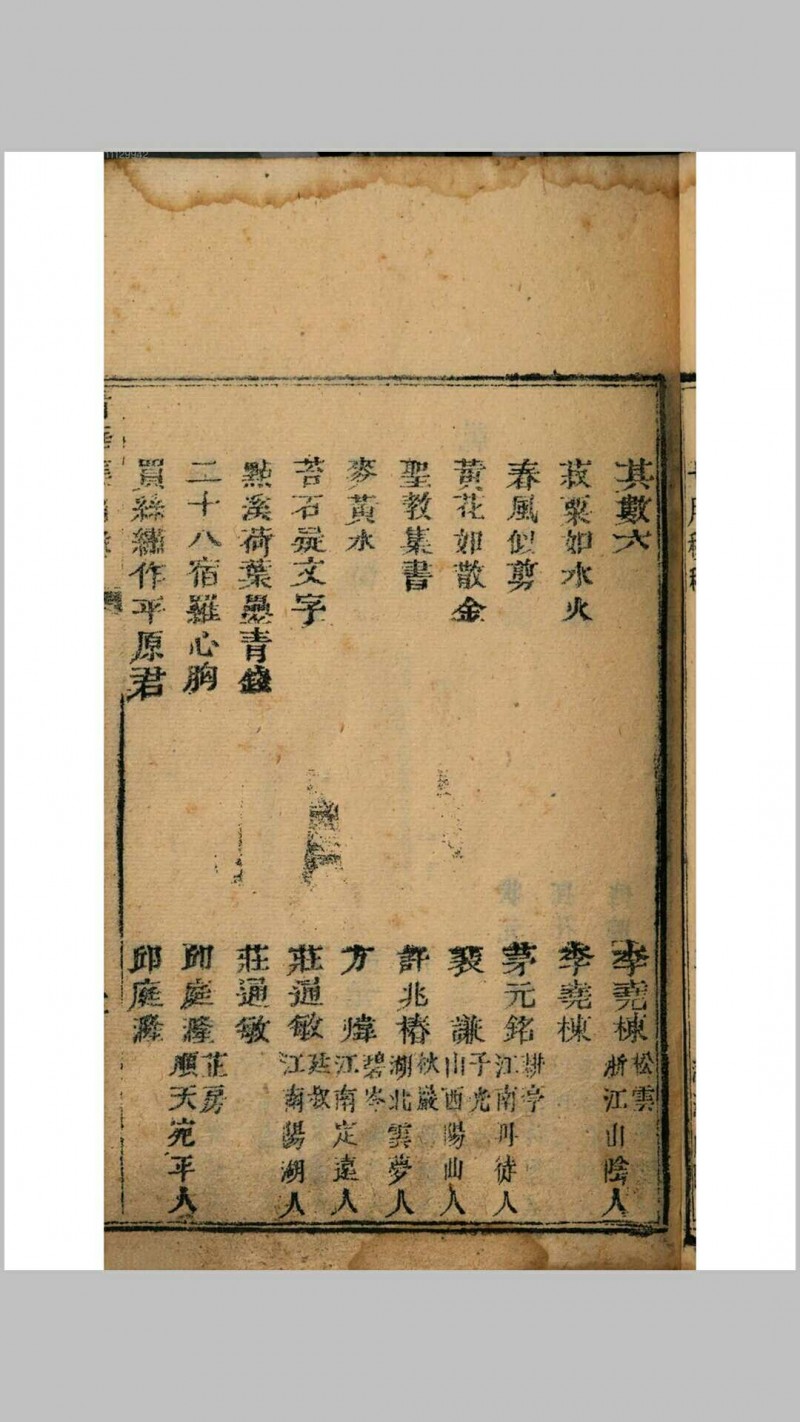 其數六　李堯棟　松雲　浙江山陰人
菽粟如水火　李堯棟
春風似剪　茅元銘　耕亭　江南丹徒人
黃花如散金　裴謙　子光　山西陽曲人
聖教集書　許兆椿　秋巖　湖北雲夢人
麥黃水　方煒　碧岑　江南定遠人
苔石疑文字　莊通敏　廷叙　江南陽湖人
點溪荷葉疊青錢　莊通敏
二十八宿羅心胸　邱庭漋　芷房　順天宛平人
買絲繡作平原君　邱庭漋